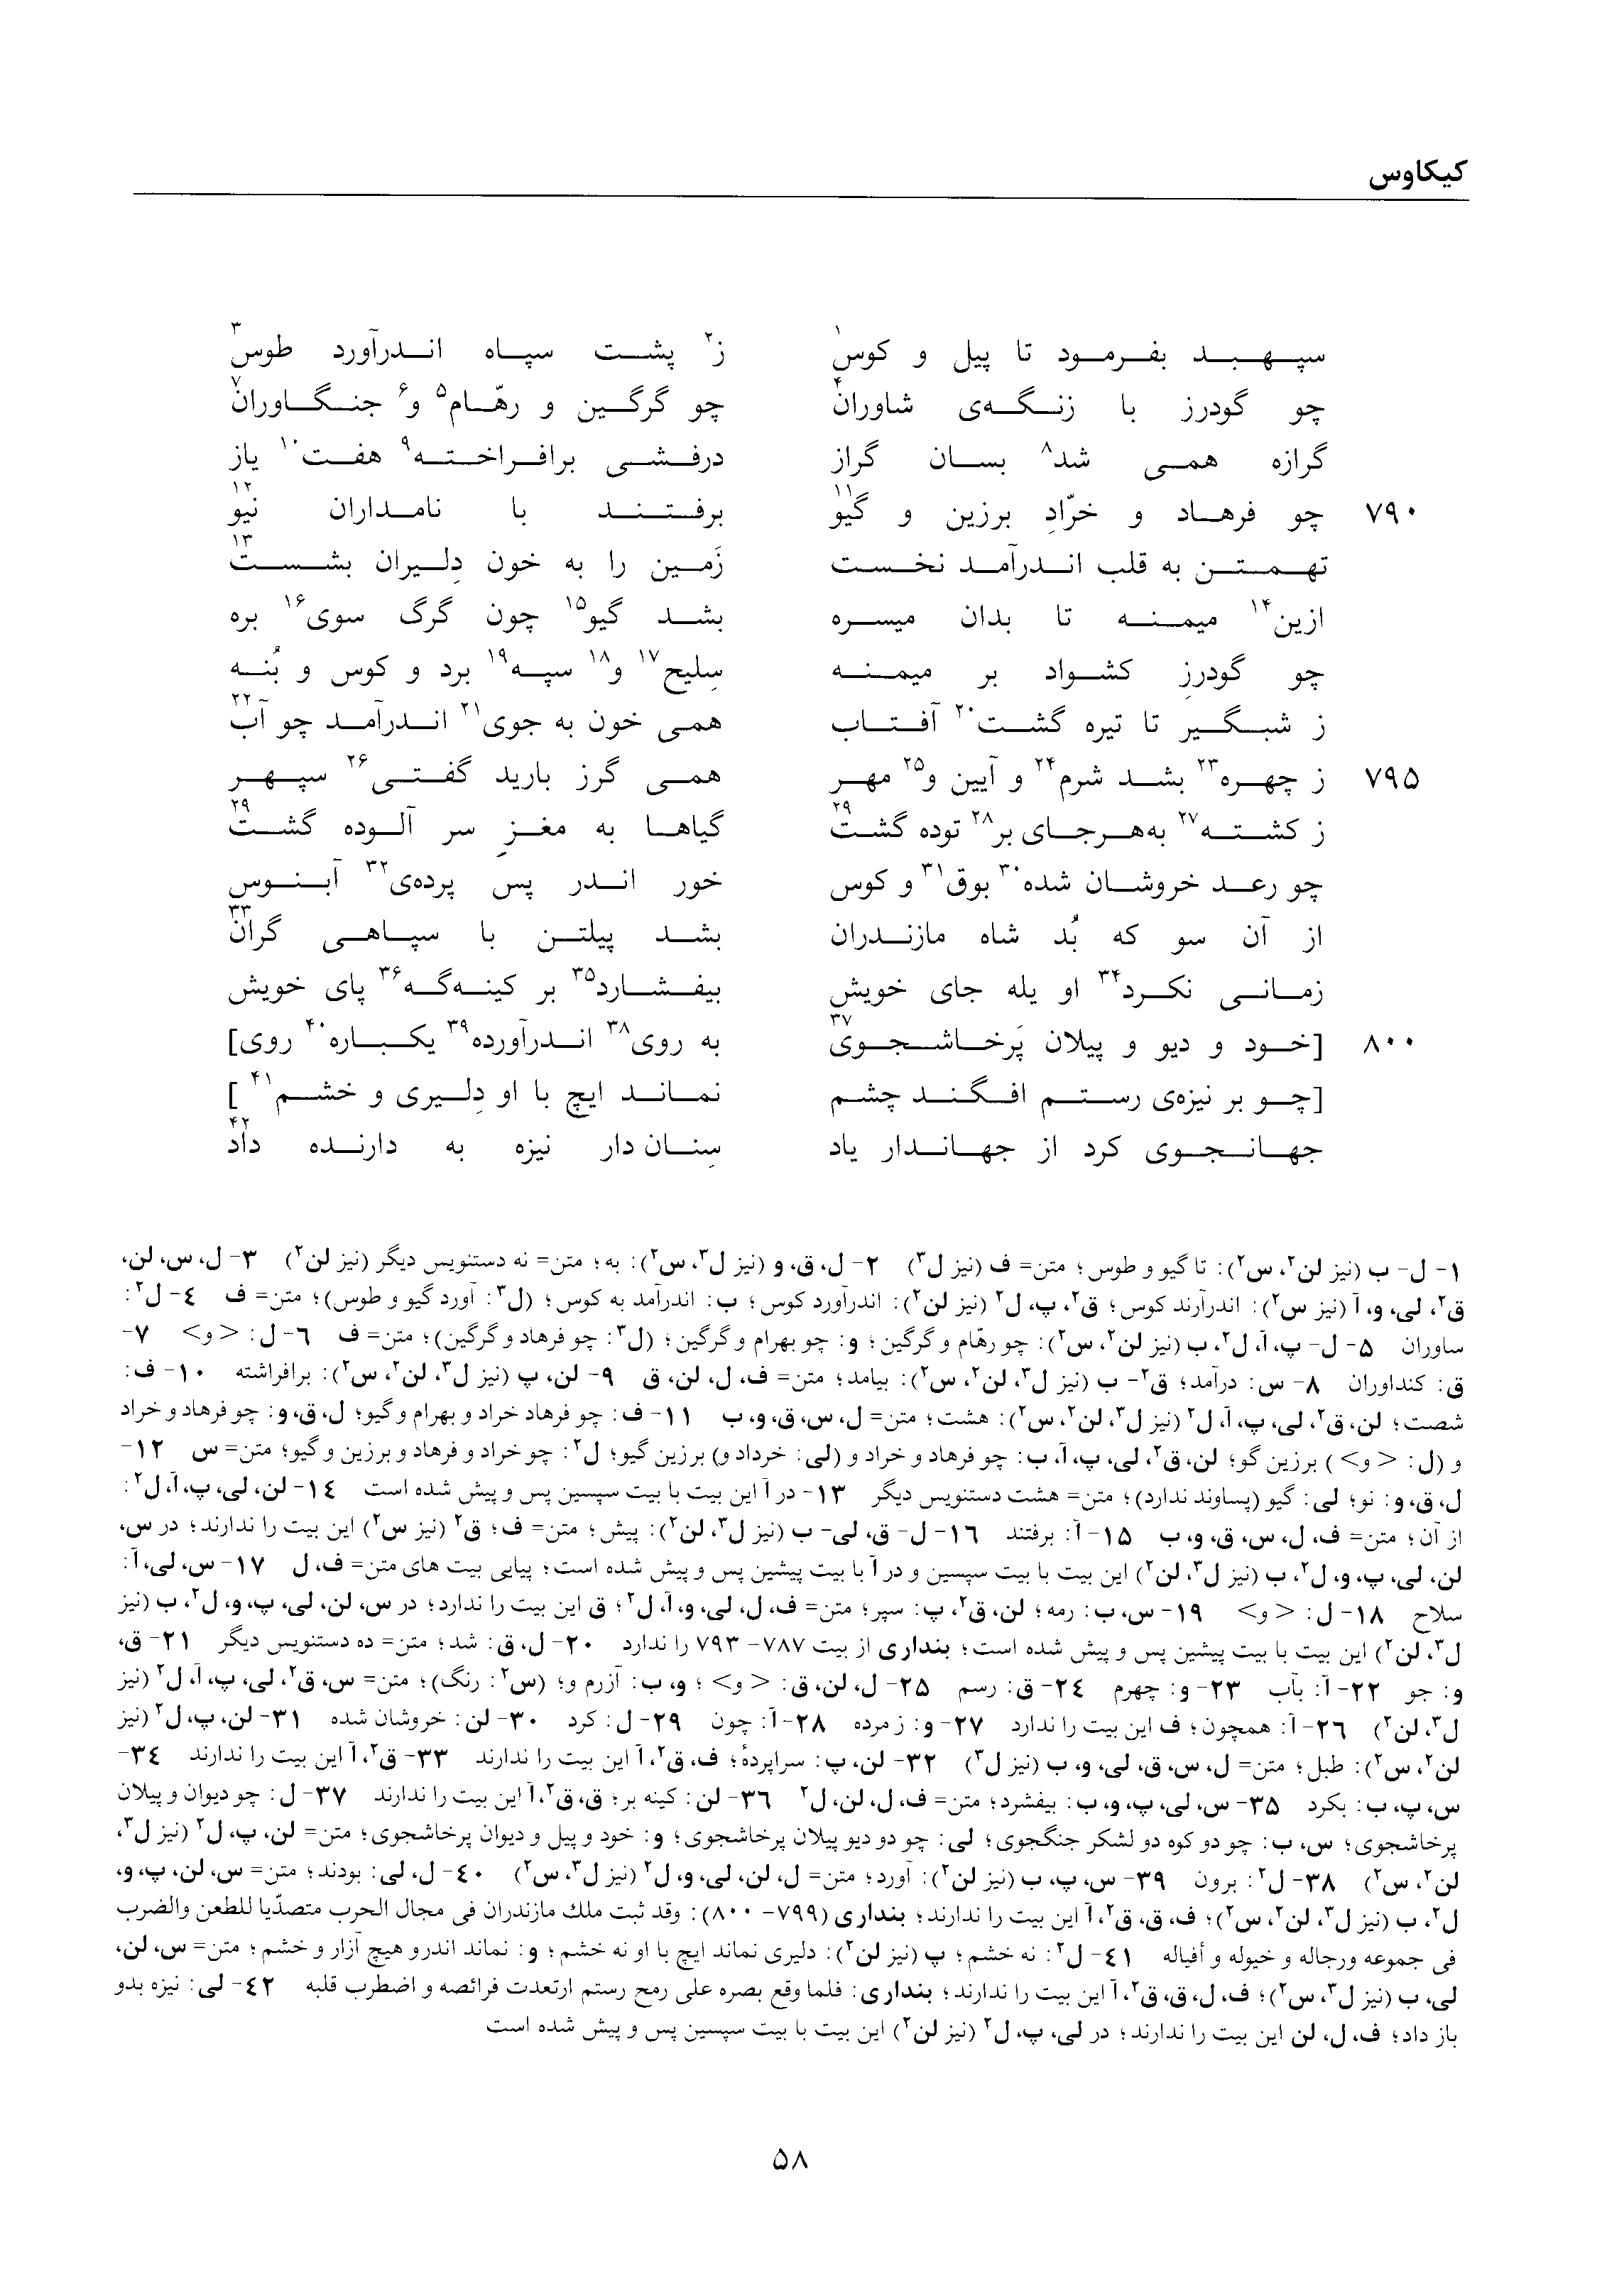 کیکاوس
سپهبد بفرمود تا پیل و کوس۱ ز۲ پشت سپاه اندرآورد طوس۳
چو گودرز با زنگه‌ی شاوران۴ چو گرگین و رهّام۵ و۶ جنگاوران۷
گرازه همی شد۸ بسان گراز درفشی برافراخته۹ هفت۱۰ یاز
۷۹۰ چو فرهاد و خرّادِ برزین و گیو۱۱ برفتند با نامداران نیو۱۲
تهمتن به قلب اندرآمد نخست زَمین را به خون دِلیران بشست۱۳
ازین۱۴ میمنه تا بدان میسره بشد گیو۱۵ چون گرگ سوی۱۶ بره
چو گودرزِ کشواد بر میمنه سِلیح۱۷ و۱۸ سپه۱۹ برد و کوس و بُنه
ز شبگیر تا تیره گشت۲۰ آفتاب همی خون به جوی۲۱ اندرآمد چو آب۲۲
۷۹۵ ز چهره۲۳ بشد شرم۲۴ و آیین و۲۵ مهر همی گرز بارید گفتی۲۶ سپهر
ز کشته۲۷ به‌هرجای بر۲۸ توده گشت۲۹ گیاها به مغزِ سر آلوده گشت۲۹
چو رعد خروشان شده۳۰ بوق۳۱ و کوس خور اندر پس پرده‌ی۳۲ آبنوس
از آن سو که بُد شاه مازندران بشد پیلتن با سپاهی گران۳۳
زمانی نکرد۳۴ او یله جای خویش بیفشارد۳۵ بر کینه‌گه۳۶ پای خویش
۸۰۰ [خود و دیو و پیلان پَرخاشجوی۳۷ به روی۳۸ اندرآورده۳۹ یکباره۴۰ روی]
[چو بر نیزه‌ی رستم افگند چشم نماند ایچ با او دِلیری و خشم۴۱]
جهانجوی کرد از جهاندار یاد سِنان‌دار نیزه به دارنده داد۴۲
۱- ل- ب (نیز لن۲، س۲): تا گیو و طوس؛ متن= ف (نیز ل۳) ۲- ل، ق، و (نیز ل۳، س۲): به؛ متن= نه دستنویس دیگر (نیز لن۲) ۳- ل، س، لن،
ق۲، لی، و، آ (نیز س۲): اندرآرند کوس؛ ق۲، پ، ل۲ (نیز لن۲): اندرآورد کوس؛ ب: اندرآمد به کوس؛ (ل۳: آورد گیو و طوس)؛ متن= ف ۴- ل۲:
ساوران ۵- ل- پ، آ، ل۲، ب (نیز لن۲، س۲): چو رهّام و گرگین؛ و: چو بهرام و گرگین؛ (ل۳: چو فرهاد و گرگین)؛ متن= ف ۶- ل: < و> ۷-
ق: کنداوران ۸- س: درآمد؛ ق۲- ب (نیز ل۳، لن۲، س۲): بیامد؛ متن= ف، ل، لن، ق ۹- لن، پ (نیز ل۳، لن۲، س۲): برافراشته ۱۰- ف:
شصت؛ لن، ق۲، لی، پ، آ، ل۲ (نیز ل۳، لن۲، س۲): هشت؛ متن= ل، س، ق، و، ب ۱۱- ف: چو فرهاد خراد و بهرام و گیو؛ ل، ق، و: چو فرهاد و خراد
و (ل: < و>) برزین گو؛ لن، ق۲، لی، پ، آ، ب: چو فرهاد و خراد و (لی: خرداد و) برزین گیو؛ ل۲: چو خراد و فرهاد و برزین و گیو؛ متن= س ۱۲-
ل، ق، و: نو؛ لی: گیو (پساوند ندارد)؛ متن= هشت دستنویس دیگر ۱۳- در آ این بیت با بیت سپسین پس و پیش شده است ۱۴- لن، لی، پ، آ، ل۲:
از آن؛ متن= ف، ل، س، ق، و، ب ۱۵- آ: برفتند ۱۶- ل- ق، لی- ب (نیز ل۳، لن۲): پیش؛ متن= ف؛ ق۲ (نیز س۲) این بیت را ندارند؛ در س،
لن، لی، پ، و، ل۲، ب (نیز ل۳، لن۲) این بیت با بیت سپسین و در آ با بیت پیشین پس و پیش شده است؛ پیایی بیت های متن= ف، ل ۱۷- س، لی، آ:
سلاح ۱۸- ل: < و> ۱۹- س، ب: رمه؛ لن، ق۲، پ: سپر؛ متن= ف، ل، لی، و، آ، ل۲؛ ق این بیت را ندارد؛ در س، لن، لی، پ، و، ل۲، ب (نیز
ل۳، لن۲) این بیت با بیت پیشین پس و پیش شده است؛ بنداری از بیت ۷۸۷- ۷۹۳ را ندارد ۲۰- ل، ق: شد؛ متن= ده دستنویس دیگر ۲۱- ق،
و: جو ۲۲- آ: بآب ۲۳- و: چهرم ۲۴- ق: رسم ۲۵- ل، لن، ق: < و> ؛ و، ب: آزرم و؛ (س۲: رنگ)؛ متن= س، ق۲، لی، پ، آ، ل۲ (نیز
ل۳، لن۲) ۲۶- آ: همچون؛ ف این بیت را ندارد ۲۷- و: ز مرده ۲۸- آ: چون ۲۹- ل: کرد ۳۰- لن: خروشان شده ۳۱- لن، پ، ل۲ (نیز
لن۲، س۲): طبل؛ متن= ل، س، ق، لی، و، ب (نیز ل۳) ۳۲- لن، پ: سراپردهٔ؛ ف، ق۲، آ این بیت را ندارند ۳۳- ق۲، آ این بیت را ندارند ۳۴-
س، پ، ب: بکرد ۳۵- س، لی، پ، و، ب: بیفشرد؛ متن= ف، ل، لن، ل۲ ۳۶- لن: کینه بر؛ ق، ق۲، آ این بیت را ندارند ۳۷- ل: چو دیوان و پیلان
پرخاشجوی؛ س، ب: چو دو کوه دو لشکر جنگجوی؛ لی: چو دو دیو پیلان پرخاشجوی؛ و: خود و پیل و دیوان پرخاشجوی؛ متن= لن، پ، ل۲ (نیز ل۳،
لن۲، س۲) ۳۸- ل۲: برون ۳۹- س، پ، ب (نیز لن۲): آورد؛ متن= ل، لن، لی، و، ل۲ (نیز ل۳، س۲) ۴۰- ل، لی: بودند؛ متن= س، لن، پ، و،
ل۲، ب (نیز ل۳، لن۲، س۲)؛ ف، ق، ق۲، آ این بیت را ندارند؛ بنداری (۷۹۹- ۸۰۰): وقد ثبت ملك مازندران فی مجال الحرب متصدّیا للطعن والضرب
فی جموعه ورجاله و خیوله و أفیاله ۴۱- ل۲: نه خشم؛ پ (نیز لن۲): دلیری نماند ایچ با او نه خشم؛ و: نماند اندرو هیچ آزار و خشم؛ متن= س، لن،
لی، ب (نیز ل۳، س۲)؛ ف، ل، ق، ق۲، آ این بیت را ندارند؛ بنداری: فلما وقع بصره علی رمح رستم ارتعدت فرائصه و اضطرب قلبه ۴۲- لی: نیزه بدو
باز داد؛ ف، ل، لن این بیت را ندارند؛ در لی، پ، ل۲ (نیز لن۲) این بیت با بیت سپسین پس و پیش شده است
۵۸